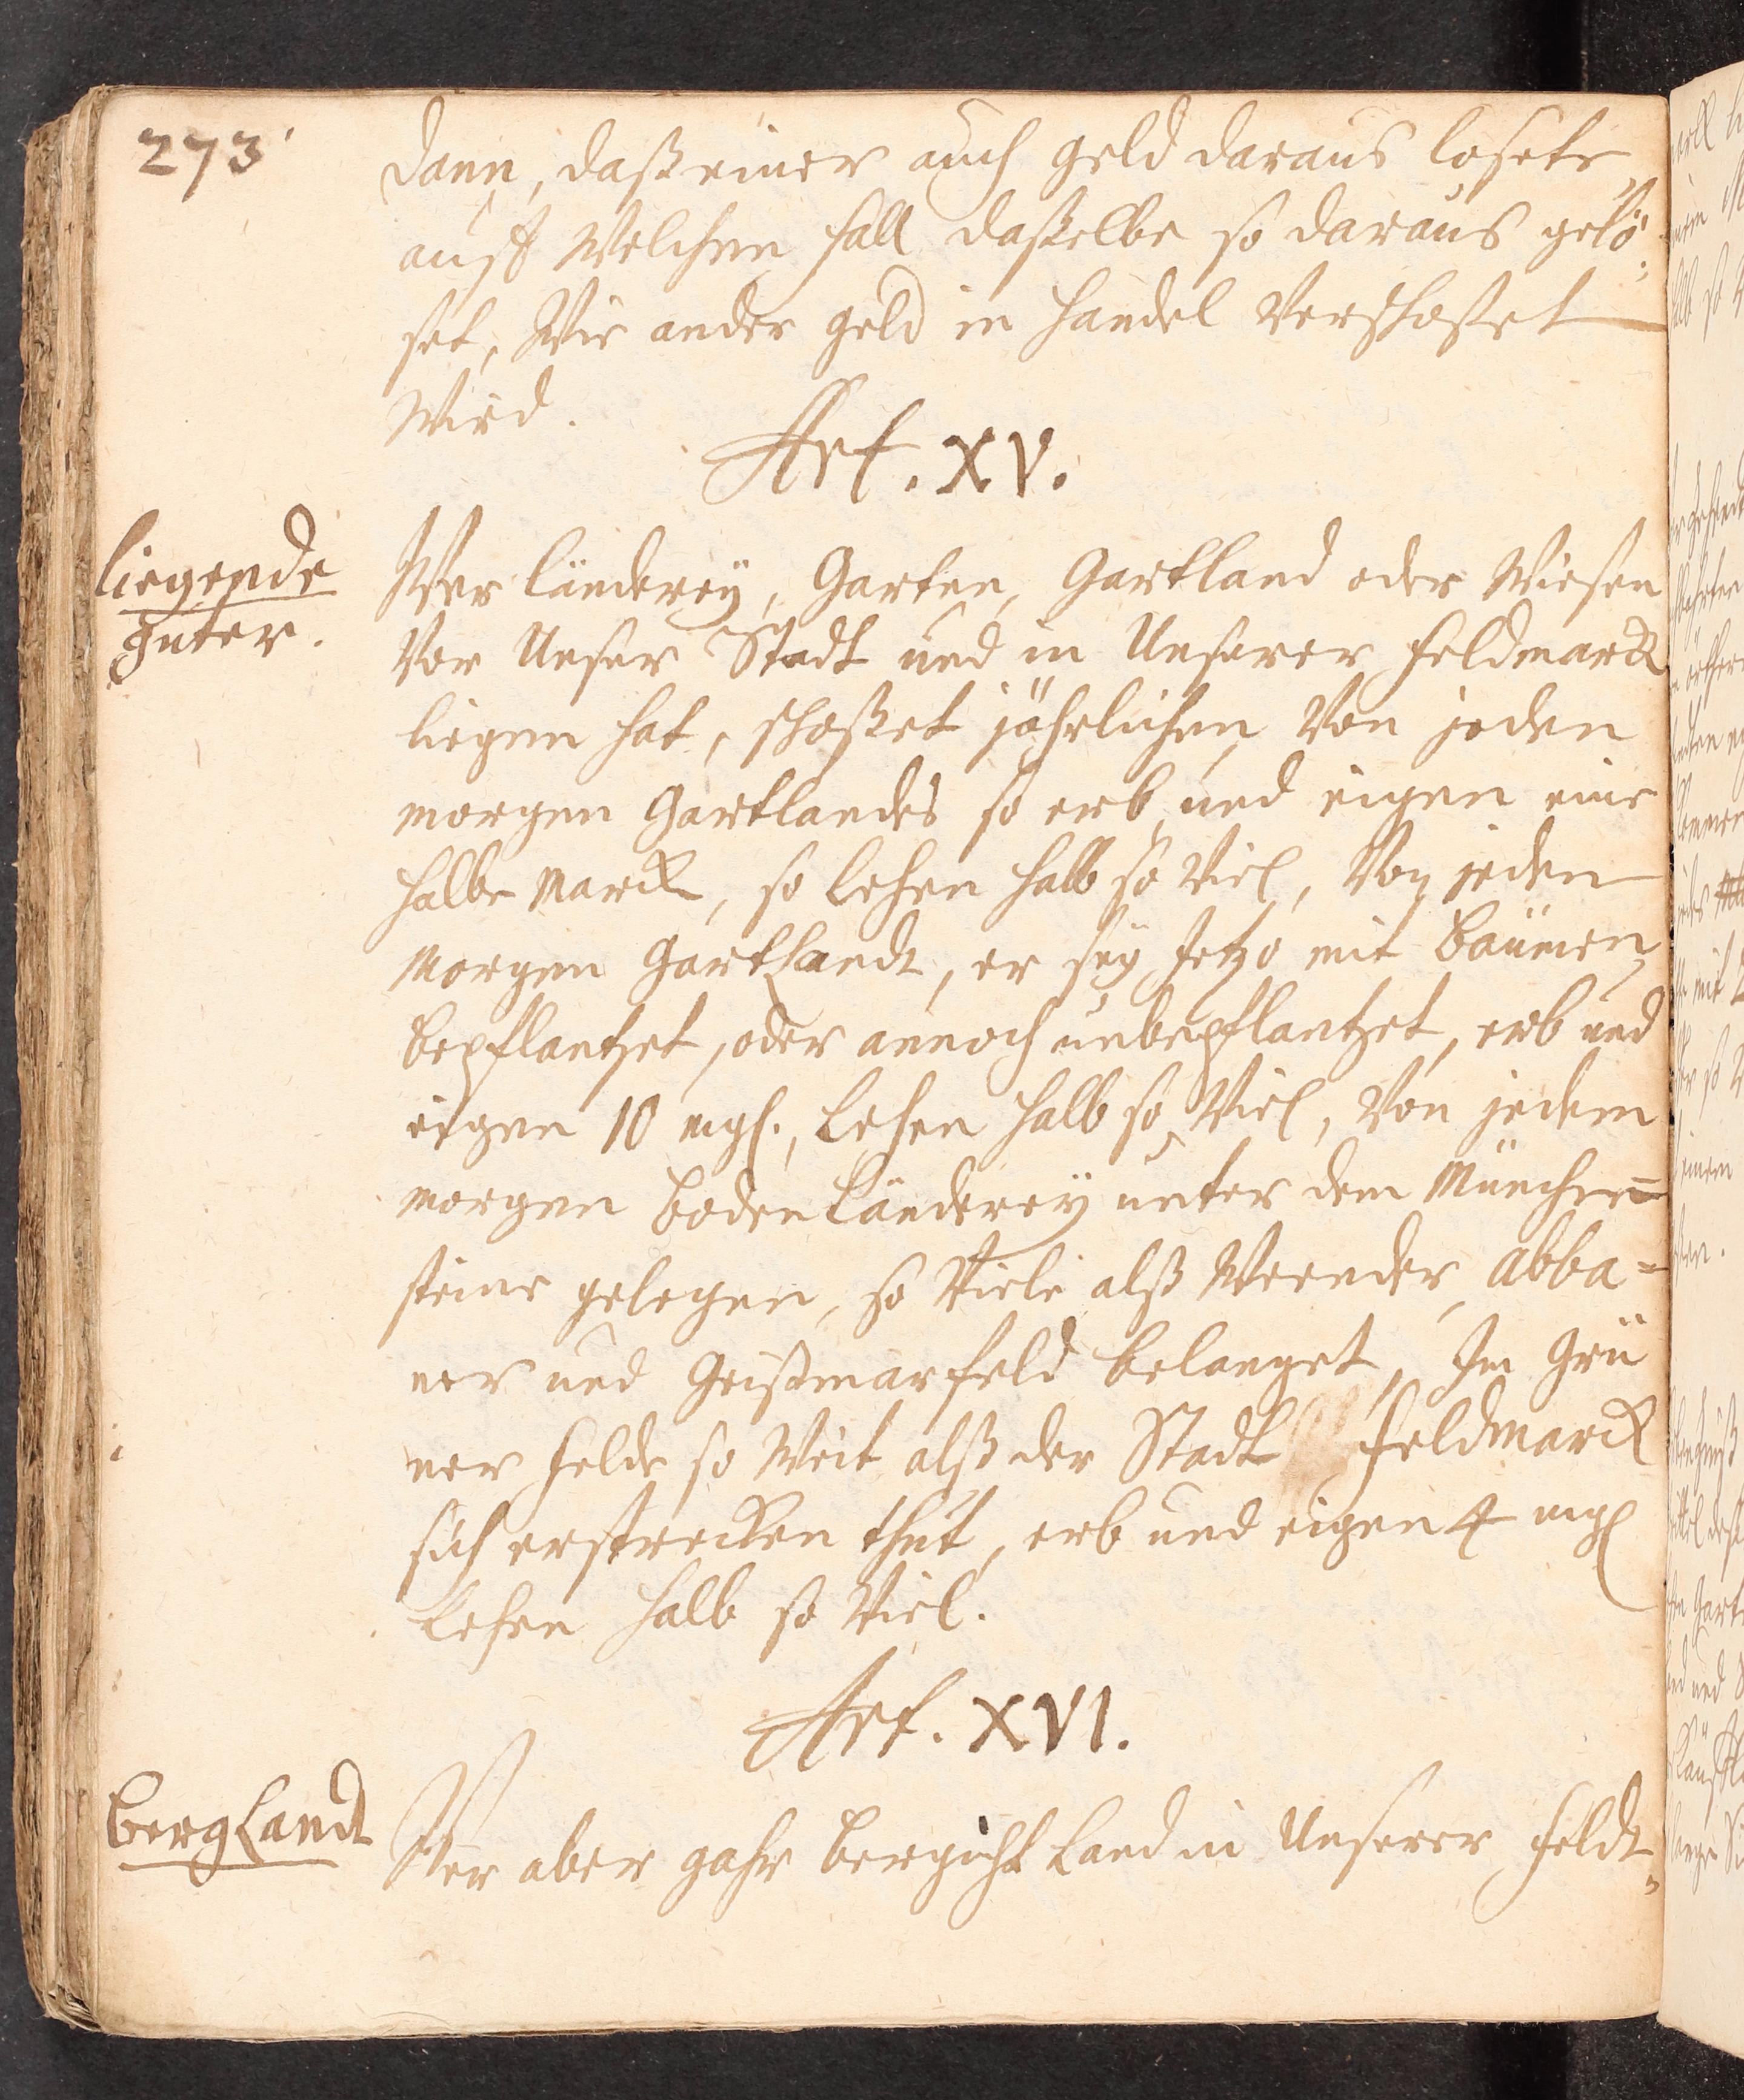 273
dann, daß einer auch geld daraus losete,
auff Welchen fall daßelbe so daraus gelö-
set, Wie ander geld in Handel Verschoßet
Wird.
Art. XV.
liegende
güter.
Wer länderey, Garten, Gartland oder Wiesen
Vor Unser Stadt und in Unserer Feldmarck
liegen hat, schoßet jährlichen Von jeden
morgen Gartlandes so erb und eigen eine
halbe Marck, so lehen halb so Viel, Von jeden
Morgen Gartlandt, er sey Jetzo mit Bäumen
bepflantzet, oder annoch unbepflantzet, erb und
eigen 10 mgl., Lehen halb so Viel, Von jedem
morgen boden Länderey unter dem München-
steine gelegen, so Viele alß Weender, Abba-
ner und Geißmarfeld belanget, Im Gro
ner Felde so Weit alß der Stadt Feldmarck
sich erstrecken thut, erb und eigen 4 mgl
Lehen halb so Viel.
Art. XVI.
bergLandt
Wer aber gahr bergicht Land in Unserer Feldt-